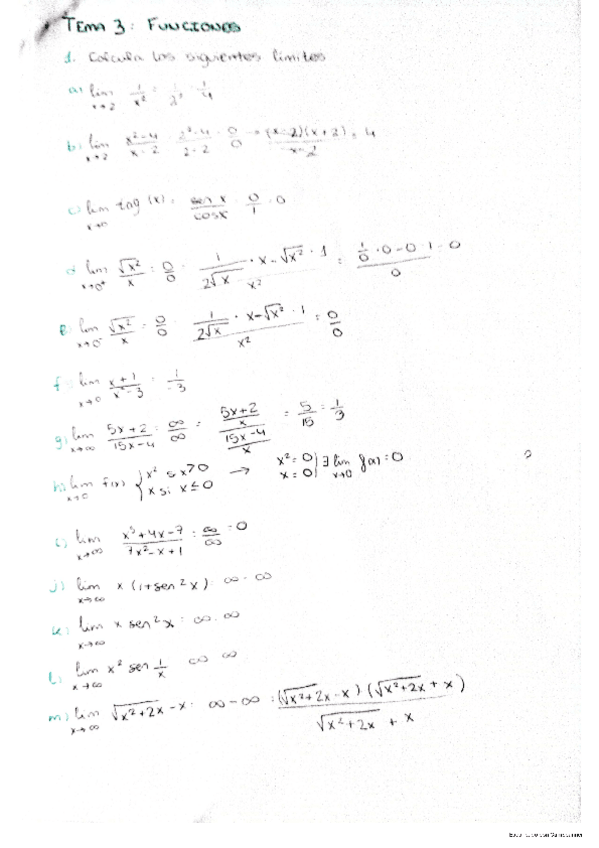 TEMA 3: FUNCIONES
1. Calcula los siguientes límites
a) lim x→2 1/x² = 1/2² = 1/4
b) lim x→2 x²-4/x-2 = 2²-4/2-2 = 0/0 → (x-2)(x+2)/x-2 = 4
c) lim tag (x) = sen x/cos x = 0/1 = 0
d) lim x→0⁺ √x²/x = 0/0 = 1/2√x · x - √x² · 1 / x² = 1/0 · 0 - 0 · 1 - 0 / 0
e) lim x→0⁻ √x²/x = 0/0 1/2√x · x - √x² · 1 / x² = 0/0
f) lim x→0 x+1/x²-3 = 1/-3
g) lim x→∞ 5x+2/15x-4 = ∞/∞ = 5x+2/x / 15x-4/x = 5/15 = 1/3
h) lim x→0 f(x) { x² si x>0 x si x≤0 → x²=0 x=0 } ∃ lim x→0 f(x) = 0
i) lim x→∞ x³+4x-7/7x²-x+1 = ∞/∞ = 0
j) lim x→∞ x (1+sen²x) = ∞ · ∞
k) lim x→∞ x sen²x = ∞ · ∞
l) lim x→∞ x² sen 1/x ∞ ∞
m) lim x→∞ √x²+2x - x = ∞ - ∞ = (√x²+2x - x) (√x²+2x + x) / √x²+2x + x